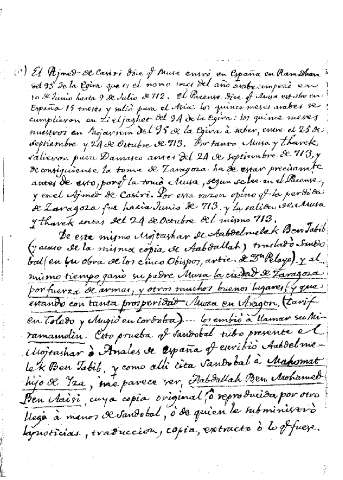 (1) El Ajmed-de Casiri dice q.e Muza entró en España en Ramadhan
del 93 de la Egira que es el nono mes del año arabe empezó en
10 de Junio hasta 9 de Julio de 712. El Pacense dice q.e Muza estubo en
España 15 meses y salió para el Asia: los quince meses arabes se
cumplieron en del 94 de la Egira: los quince meses
nuestros en del 95 de la Egira á saber, entre el 25 de
Septiembre y 24 de Octubre de 713. Por tanto Muza y Tharek
salieron para Damasco antes del 24 de Septiembre de 713, y
de consiguiente la toma de Zaragoza ha de estar precisamte
antes de eso, porq.e la tomó Muza, segun se lee en el Pacense
y en el Ajmed de Casiri. Por esta razon opino q.e la perdida
de Zaragoza fué hacia Junio de 713. y la salida de Muza
y Tharek antes del 24 de Octubre del mismo 713.
De este mismo Mojtashar de Aabdelmelek Ben Jabib
(y acaso de la misma copia de Aabdallah) trasladó Sandobal
en su obra de los cinco Obispos, artic. de Dn Pelayo: y al
mismo tiempo ganó su padre Muza la ciudad de Zaragoza
por fuerza de armas, y otros muchos buenos lugares (y que
estando con tanta prosperidad Muza en Aragon, Tarif
en Toledo y Mugid en Cordoba).... los embió á llamar su Mi-
ramamolin. Esto prueba q.e Sandobal tubo presente el
Mojtashar ó Anales de España q.e escribió Aabdelme-
lek Ben Jabib, y como alli cita Sandobal á Mahomat
hijo de Iza, me parece ver, Aabdallah Ben Mohamed
Ben cuya copia original ó reproducida por otro
llegó á manos de Sandobal, ó de quien le subministró
las noticias, traduccion, copia, extracto ó lo q.e fuese.